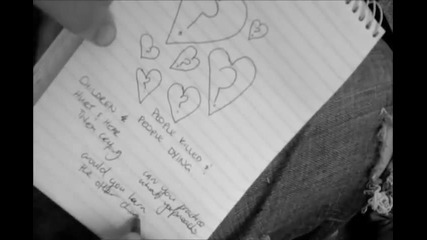 ?
?
?
?
?
?
?
PEOPLE KILLED
PEOPLE DYING
CHILDREN &
HURT & HERE
Them crying
can you practice
what
would you turn
the other